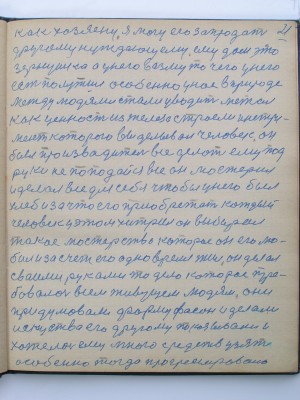 21
как хозяену, я могу его запродать
другому нуждающему, ему дам это
зернушка а у него возму то чего у него
есть
особенно у нас в природе
между людями стали уводить метал
как ценность из железа строем инстру-
мент которого выделывал человек, он
был производителем все делот ему под
руки не поподайся все он мостерил
и делал все для себя чтобы у него был
хлеб и за что его приобретат каждый
человек в этом хитрил он выбирал
такое мостерство которое он его лю-
бил и за счет его одновремя жил, он делал
своими руками то дело которое тре-
бовалося всем живущем людям, они
придумовали форму фасон и делали
искуства его другому показывали и
хотелося ему много средств взять
особенно тогда прогресировала